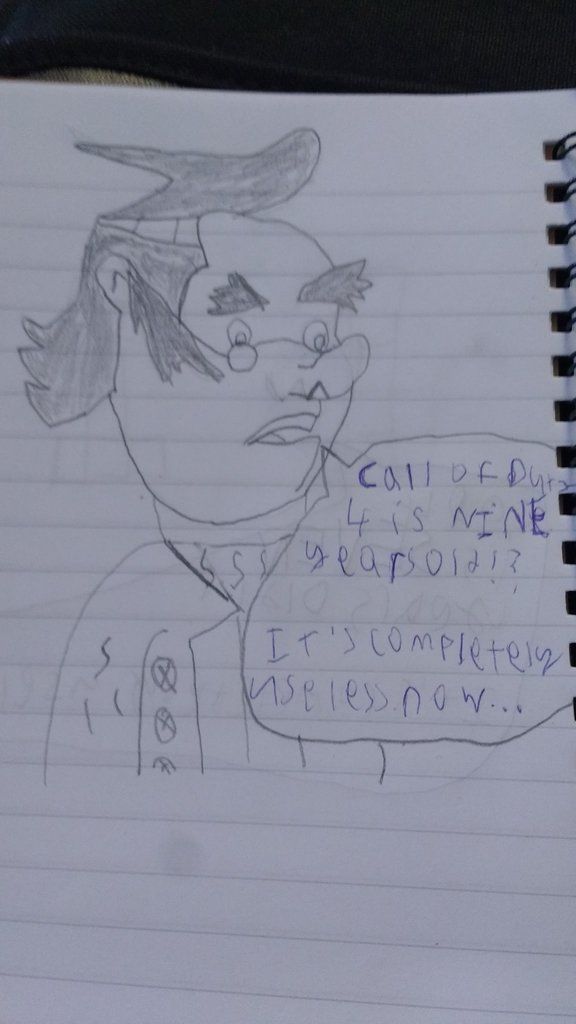 Call of Duty
4 is NINE
years old!?
It's completely
useless now...